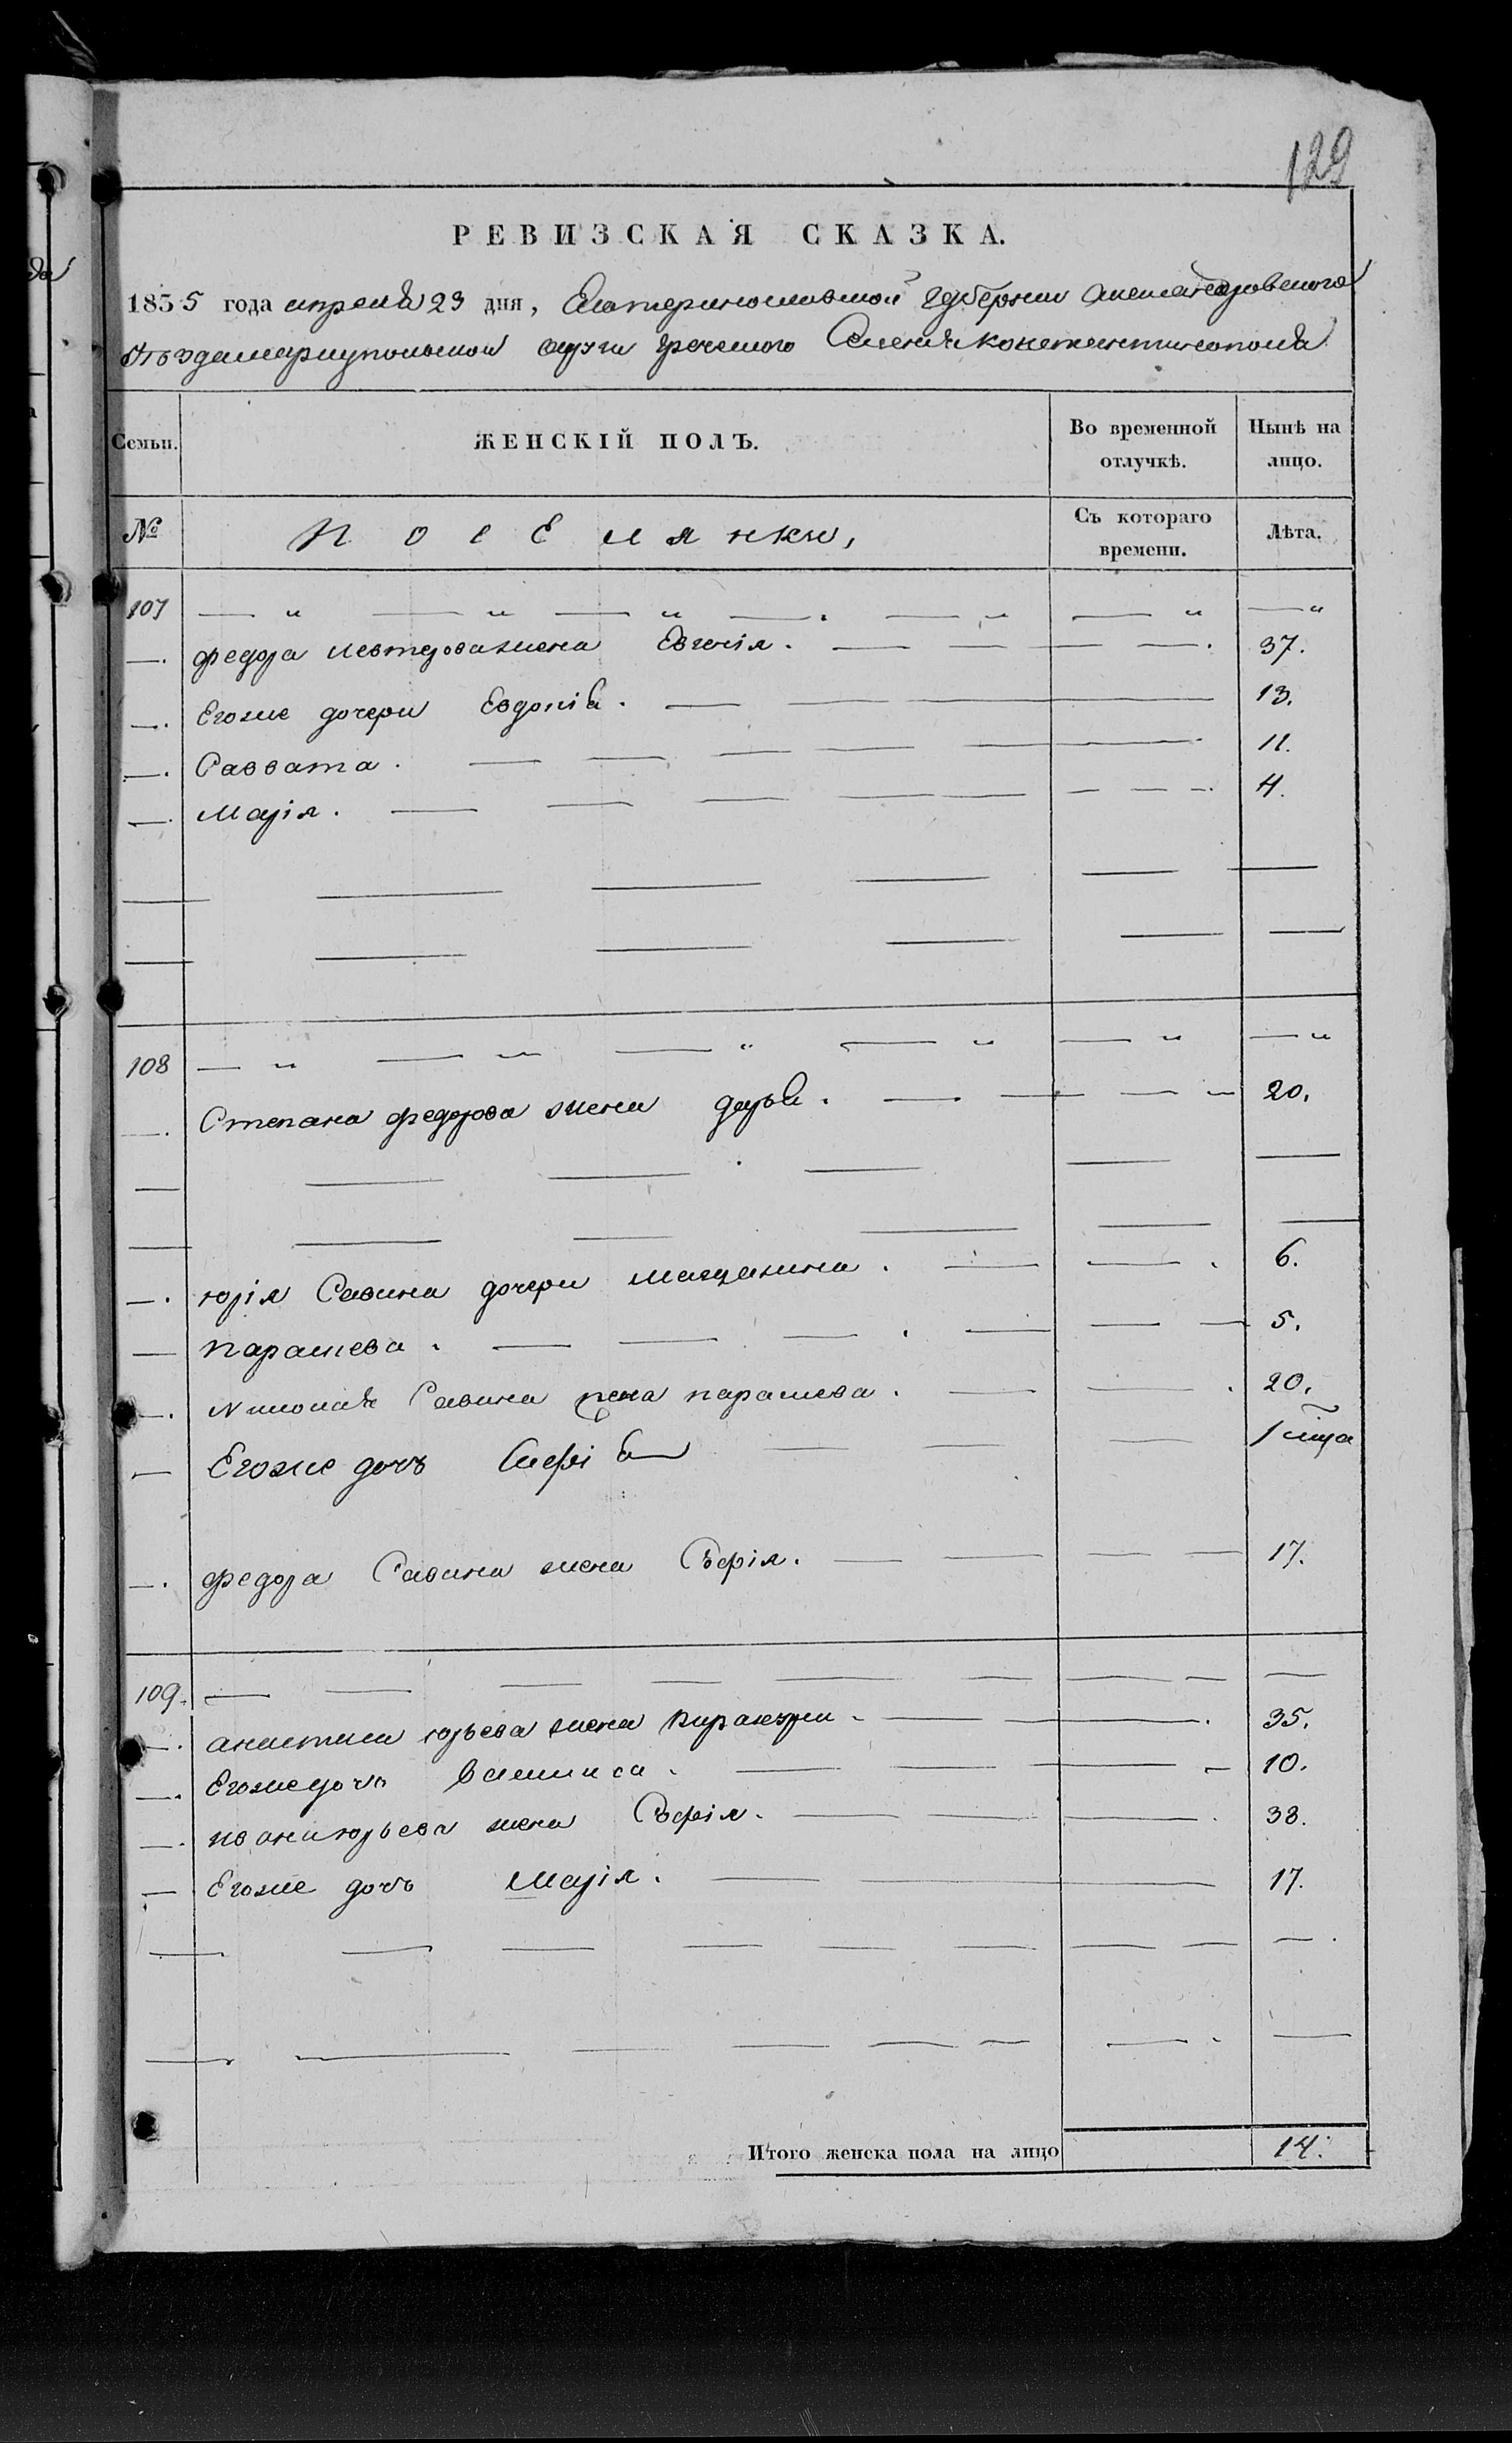 129
РЕВИЗСКАЯ СКАЗКА.
1835 года апреля 23 дня, Екатеринославской Губернии Александровского
Уезда мариупольской округи греческого Селения константинополя
Семьи. ЖЕНСКІЙ ПОЛЪ. Во временной отлучкѣ. Нынѣ на лицо.
№ поселянки, Съ котораго времени. Лѣта.
107 — „ — „ — „ — „ — „ — „ — „
—. федора левтерова жена Евгенія. — 37.
—. Егоже дочери Евдокіа. — 13.
—. Саввата. — 11.
—. Марія. — 4.
108 — „ — „ — „ — „ — „ — „
—. Степана федорова жена дарья. — 20.
—. юрія Савина дочери — 6.
— парашева. — 5.
—. николая Савина жена парашева. — 20.
— Егоже дочь 1
—. федора Савина жена Софія. — 17.
109. —
—. юрьева жена — 35.
—. Егоже дочь — 10.
—. ивана юрьева жена Софія. — 38.
— Егоже дочь Марія. — 17.
Итого женска пола на лицо 14.